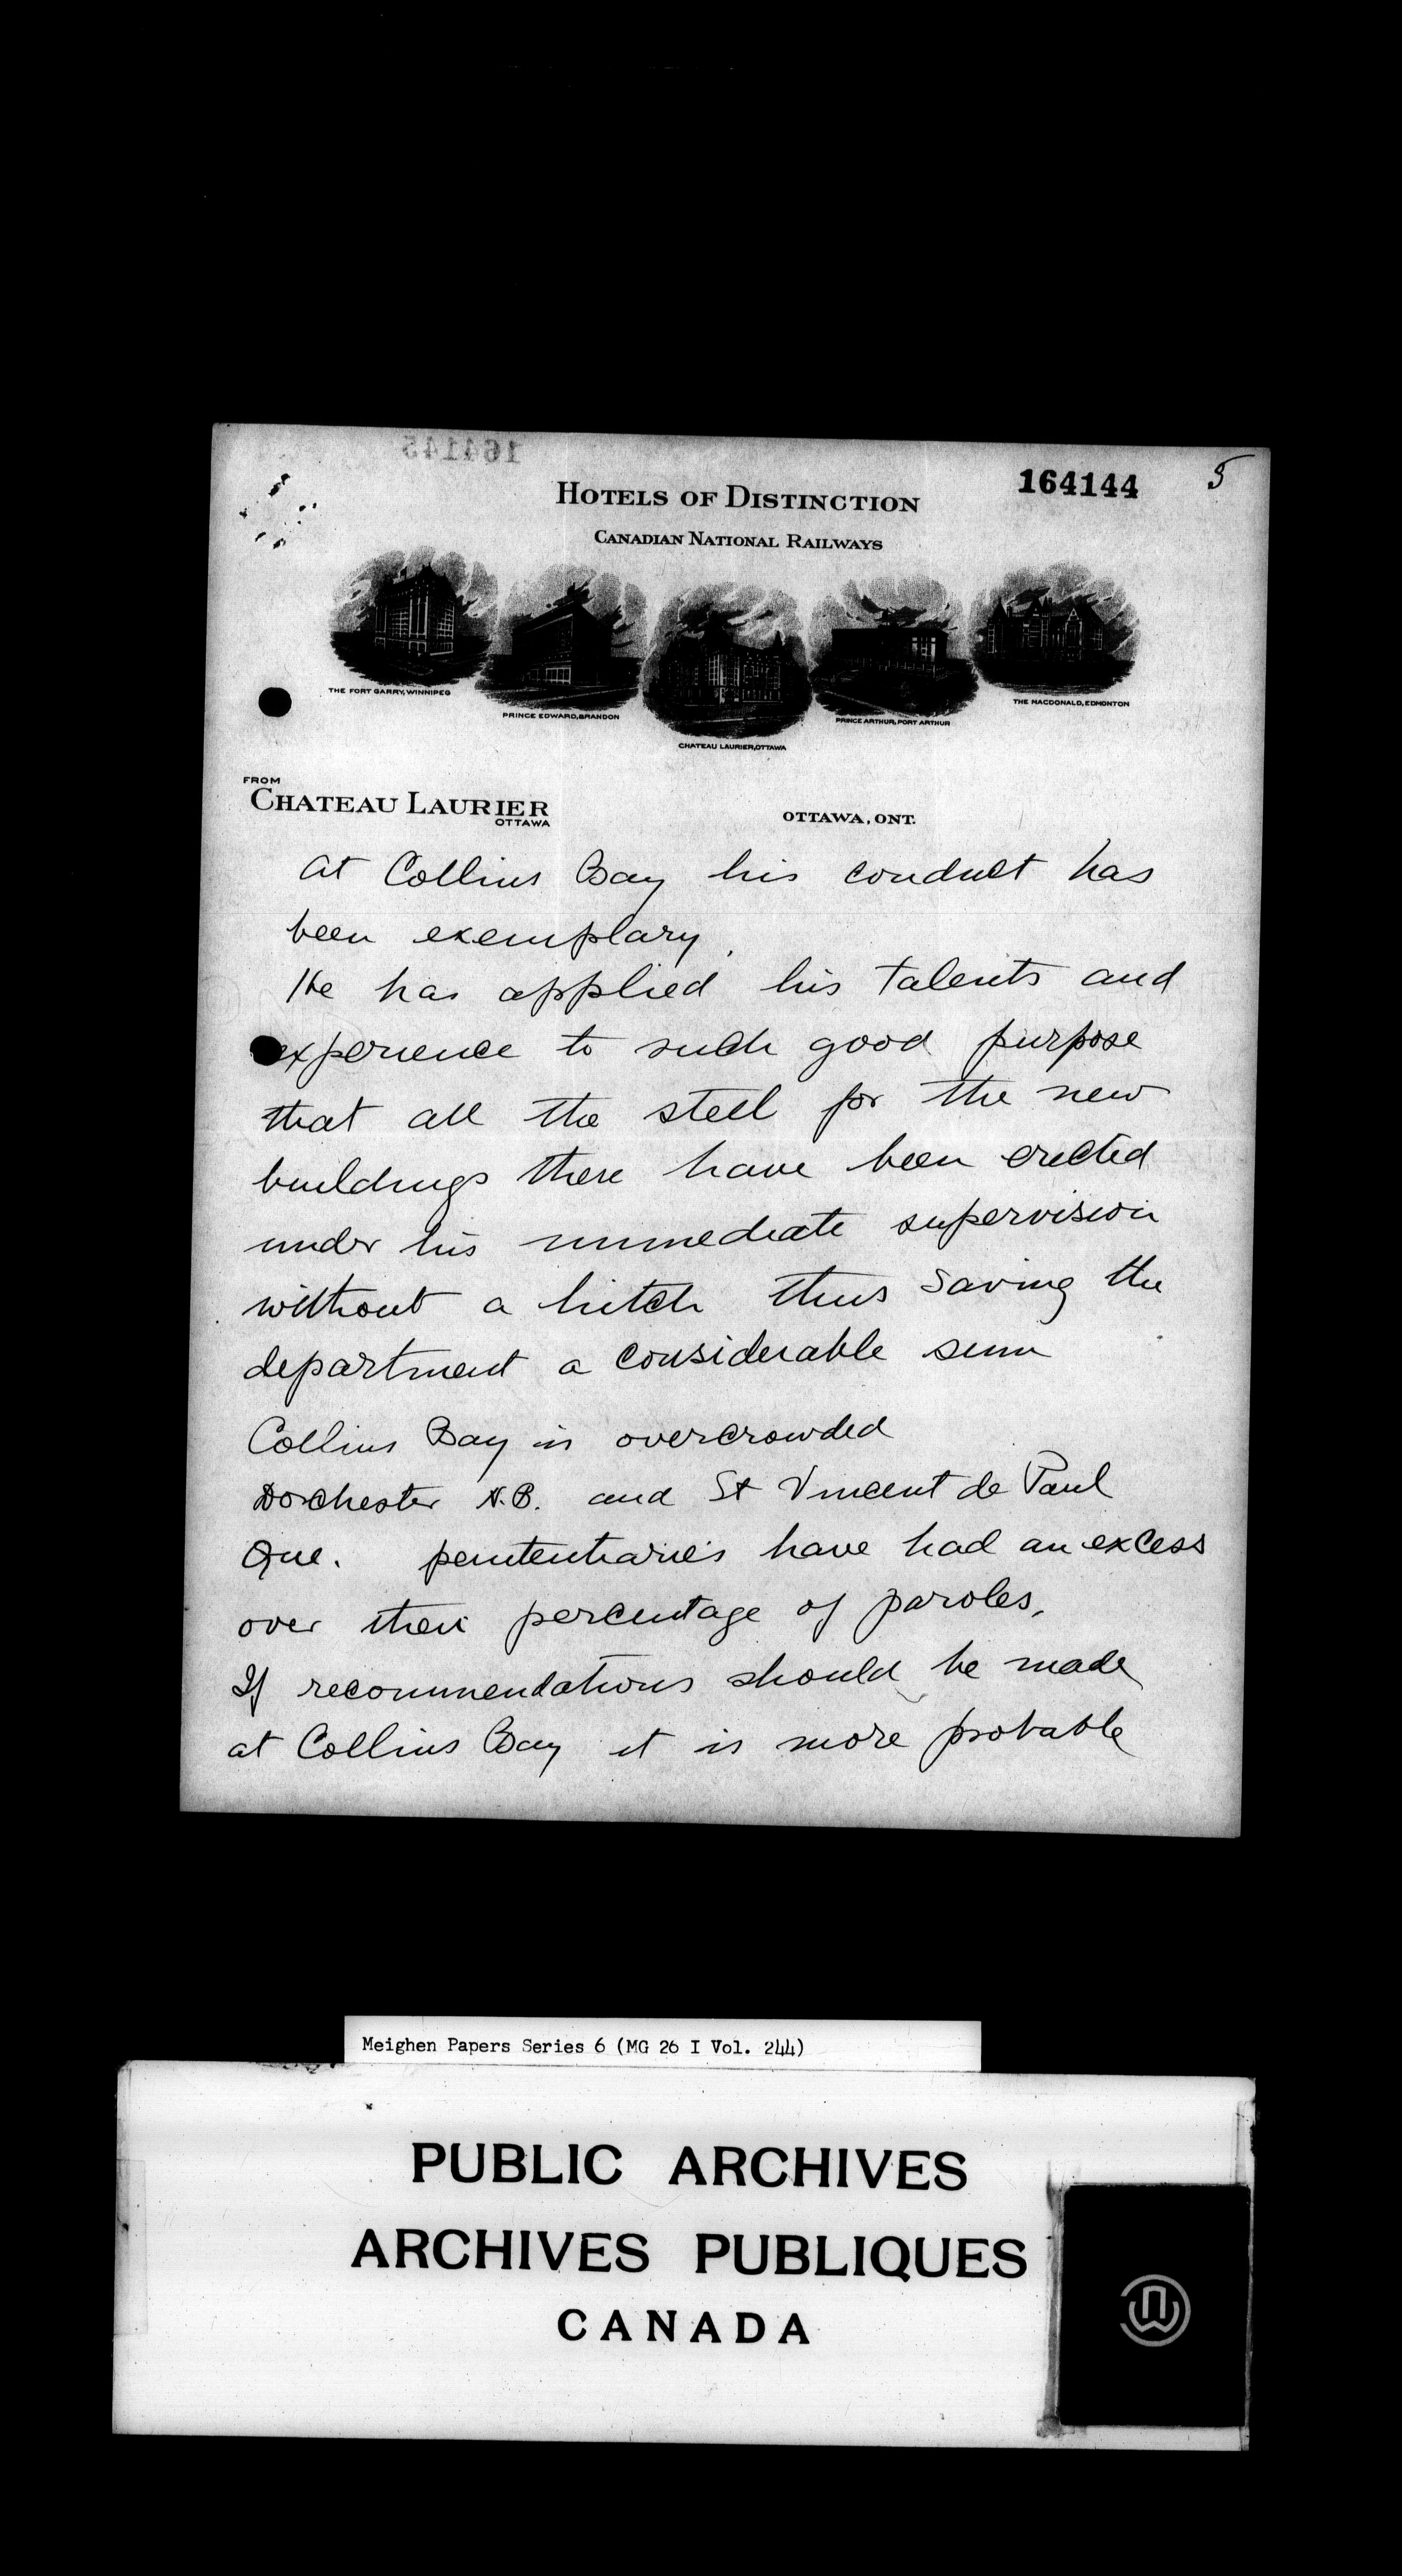 164145
164144
5
HOTELS OF DISTINCTION
CANADIAN NATIONAL RAILWAYS
THE FORT GARRY, WINNIPEG
PRINCE EDWARD, BRANDON
CHATEAU LAURIER, OTTAWA
PRINCE ARTHUR, PORT ARTHUR
THE MACDONALD, EDMONTON
FROM
CHATEAU LAURIER
OTTAWA
OTTAWA, ONT.
at Collins Bay his conduct has
been exemplary.
He has applied his talents and
experience to such good purpose
that all the steel for the new
buildings there have been erected
under his immediate supervision
without a hitch thus saving the
department a considerable sum
Collins Bay is overcrowded
Dorchester N.B. and St Vincent de Paul
Que. penitentiaries have had an excess
over their percentage of paroles,
If recommendations should be made
at Collins Bay it is more probable
Meighen Papers Series 6 (MG 26 I Vol. 244)
PUBLIC ARCHIVES
ARCHIVES PUBLIQUES
CANADA